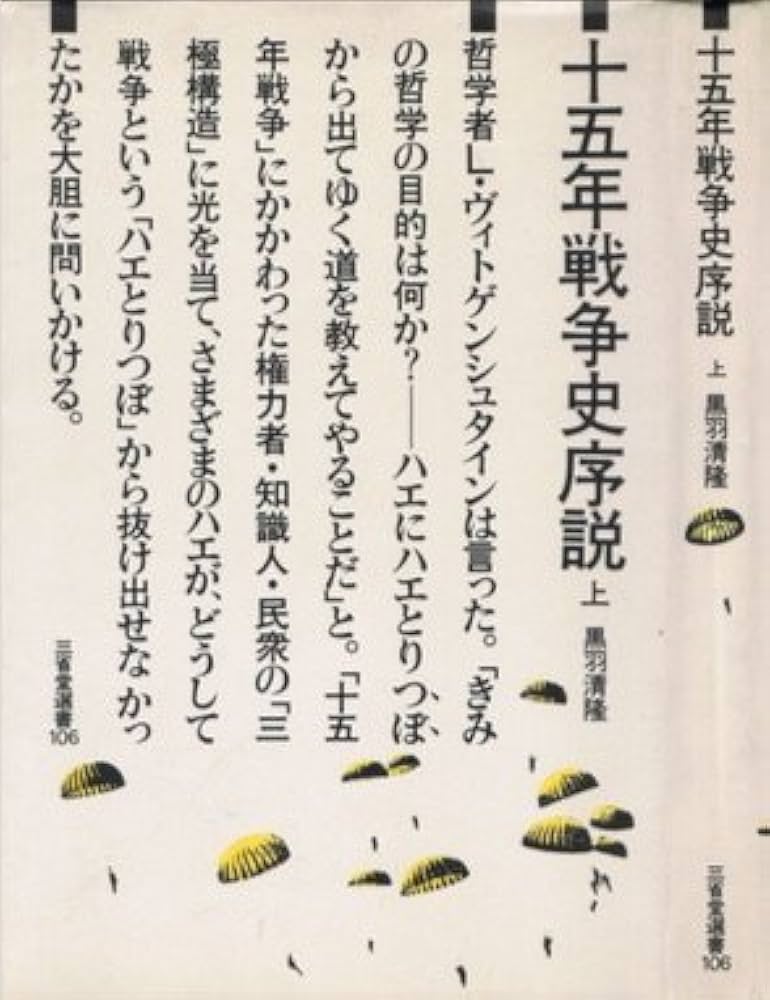 十五年戦争史序説
上
黒羽清隆
三省堂選書
106
十五年戦争史序説 上 黒羽清隆
哲学者L・ヴィトゲンシュタインは言った。「きみ
の哲学の目的は何か?——ハエにハエとりつぼ、
から出てゆく道を教えてやることだ」と。「十五
年戦争」にかかわった権力者・知識人・民衆の「三
極構造」に光を当て、さまざまのハエが、どうして
戦争という「ハエとりつぼ」から抜け出せなかっ
たかを大胆に問いかける。
三省堂選書
106